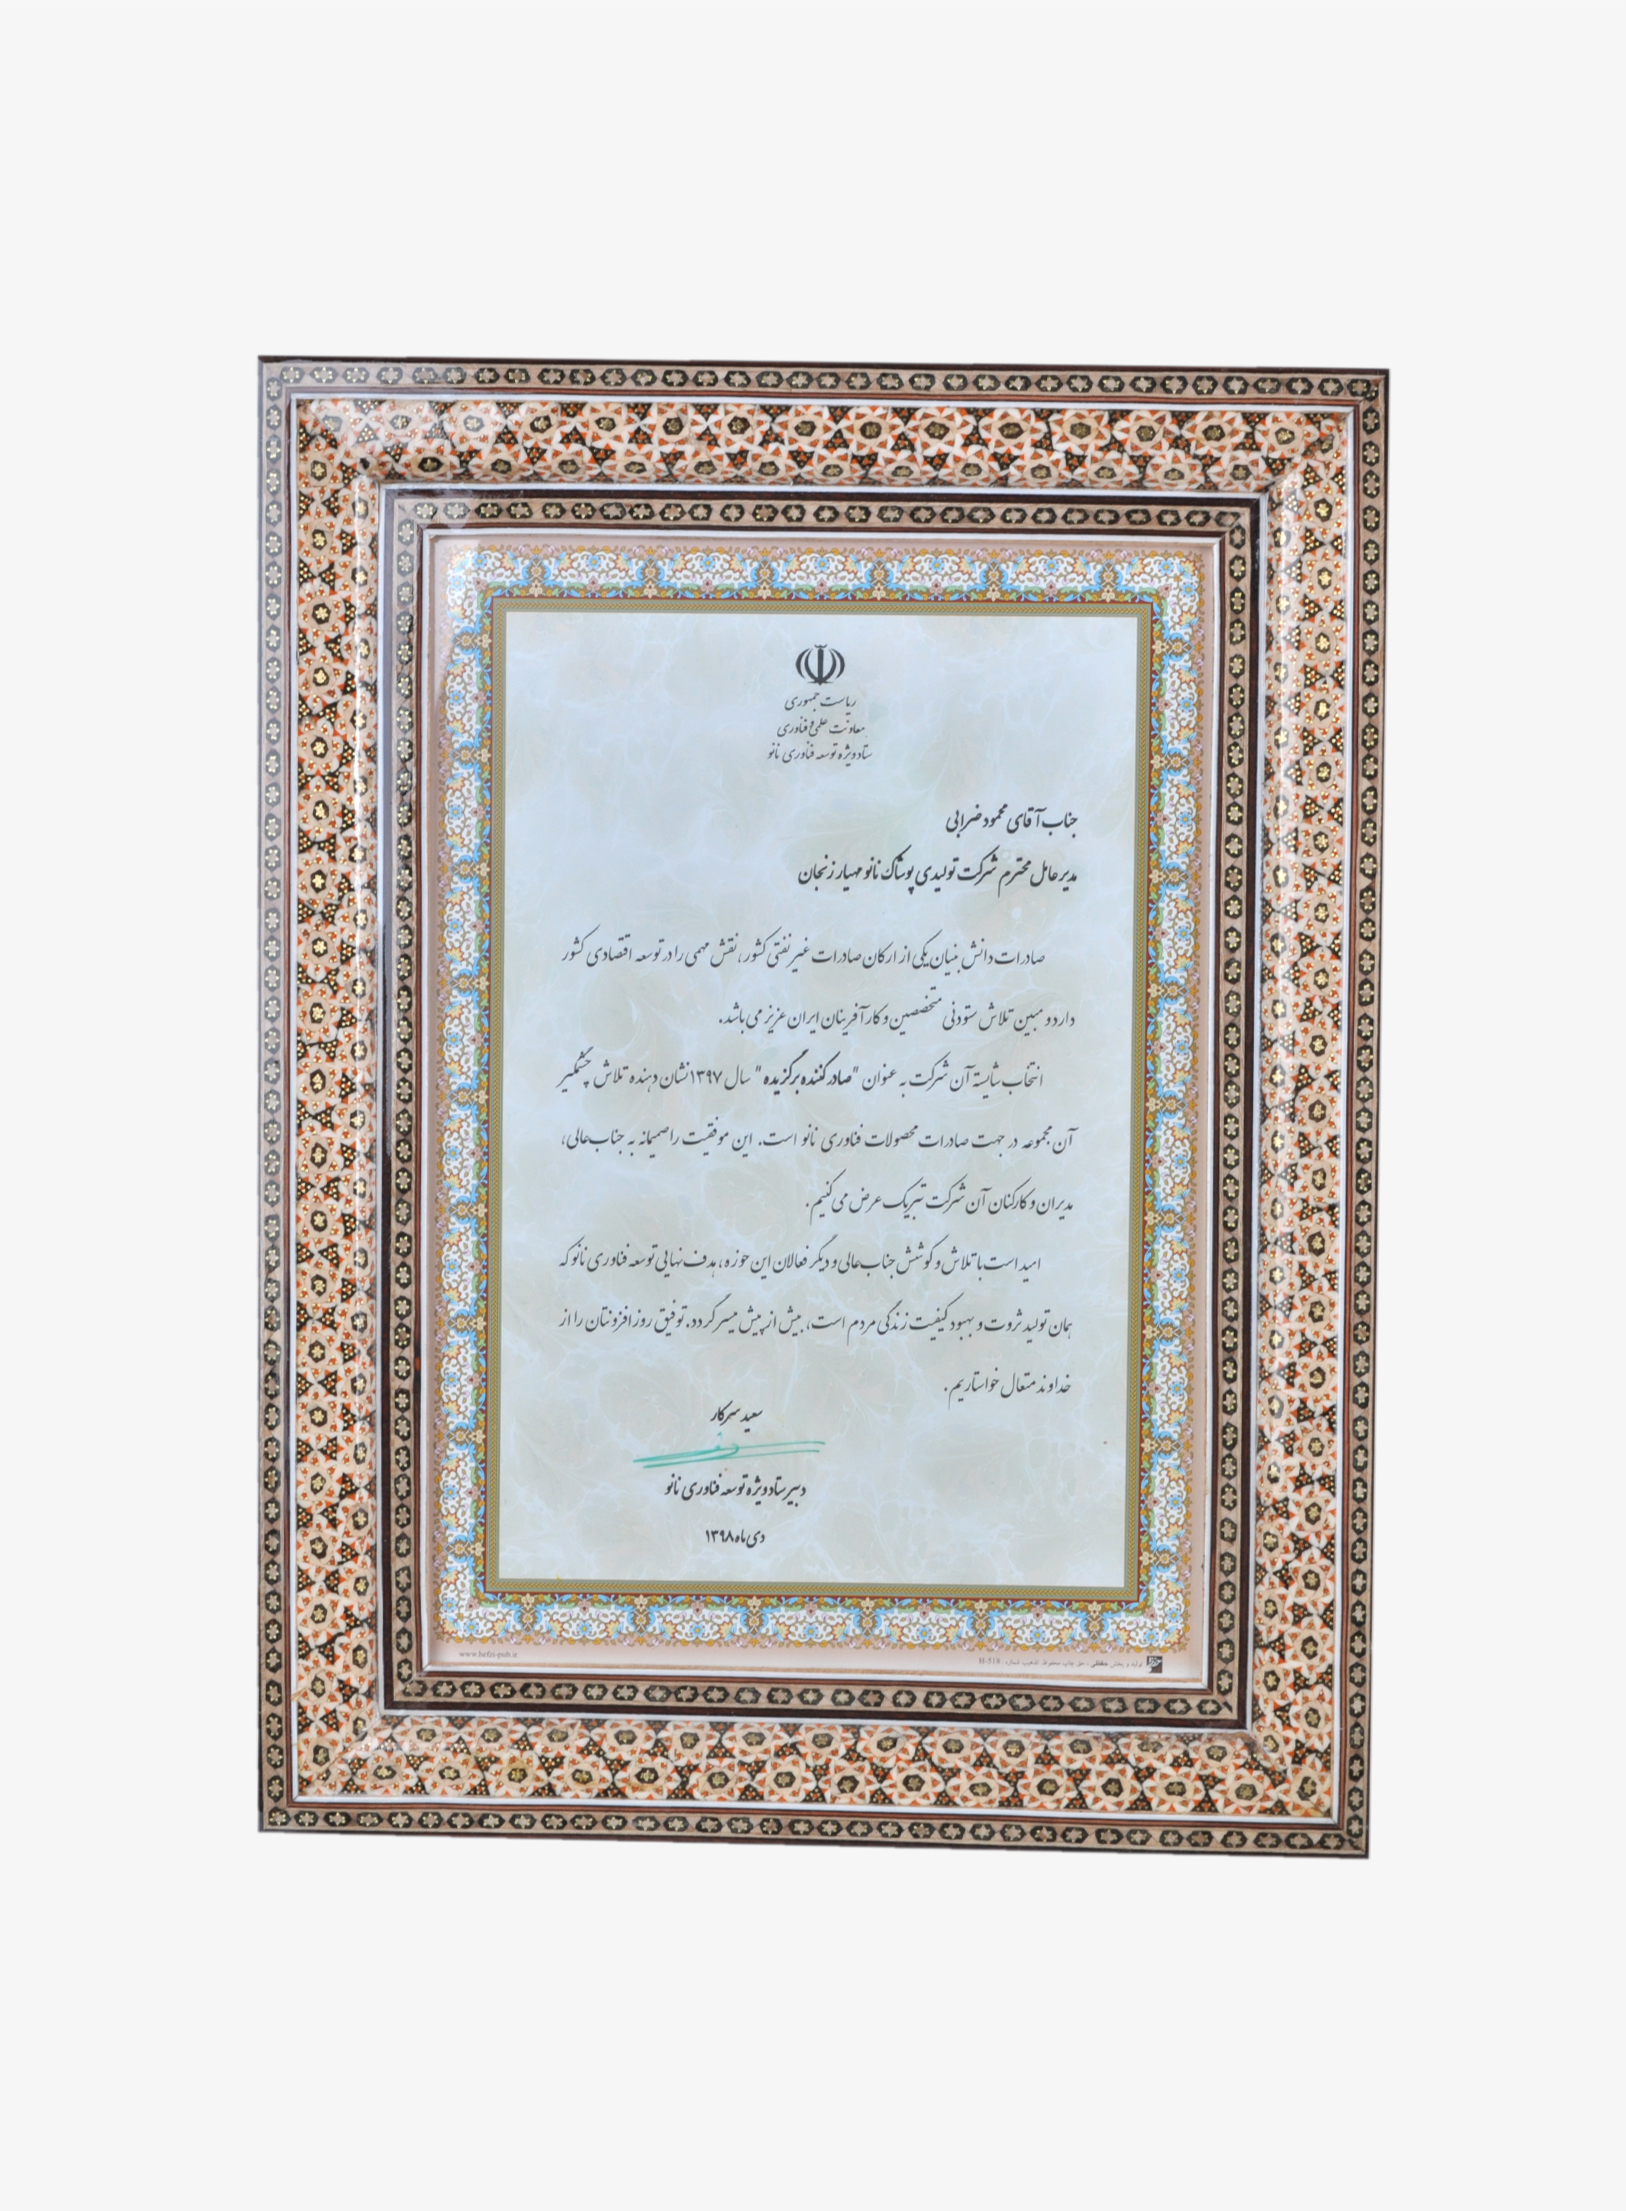 ریاست جمهوری
معاونت علمی و فناوری
ستاد ویژه توسعه فناوری نانو
جناب آقای محمود ضرابی
مدیر عامل محترم شرکت تولیدی پوشاک نانو مهیار زنجان
صادرات دانش بنیان یکی از ارکان صادرات غیر نفتی کشور، نقش مهمی را در توسعه اقتصادی کشور
دارد و مبین تلاش ستودنی متخصصین و کارآفرینان ایران عزیز می باشد.
انتخاب شایسته آن شرکت به عنوان "صادر کننده برگزیده" سال ۱۳۹۷ نشان دهنده تلاش چشمگیر
آن مجموعه در جهت صادرات محصولات فناوری نانو است. این موفقیت را صمیمانه به جناب عالی،
مدیران و کارکنان آن شرکت تبریک عرض می کنیم.
امید است با تلاش و کوشش جناب عالی و دیگر فعالان این حوزه، هدف نهایی توسعه فناوری نانو که
همان تولید ثروت و بهبود کیفیت زندگی مردم است، بیش از پیش میسر گردد. توفیق روز افزونتان را از
خداوند متعال خواستاریم.
سعید سرکار
دبیر ستاد ویژه توسعه فناوری نانو
دی ماه ۱۳۹۸
www.hefzi-pub.ir
تولید و پخش حفظی ، حق چاپ محفوظ تذهیب شماره : H-518